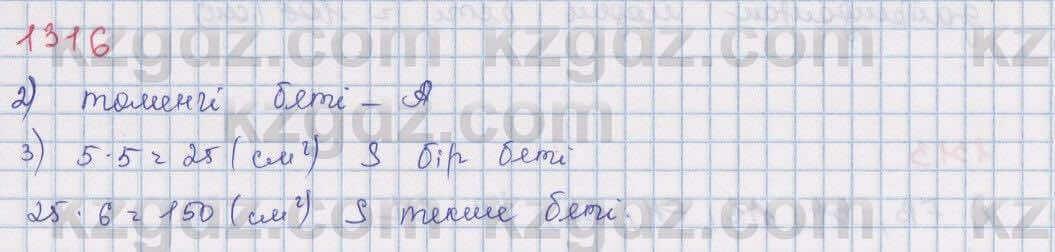 1316
kzgdz.com kzgdz.com
2) төменгі беті – А
kzgdz.com
3) 5·5=25 (см²) S бір беті
25·6=150 (см²) S текше беті.
kzgdz.com kzgdz.com